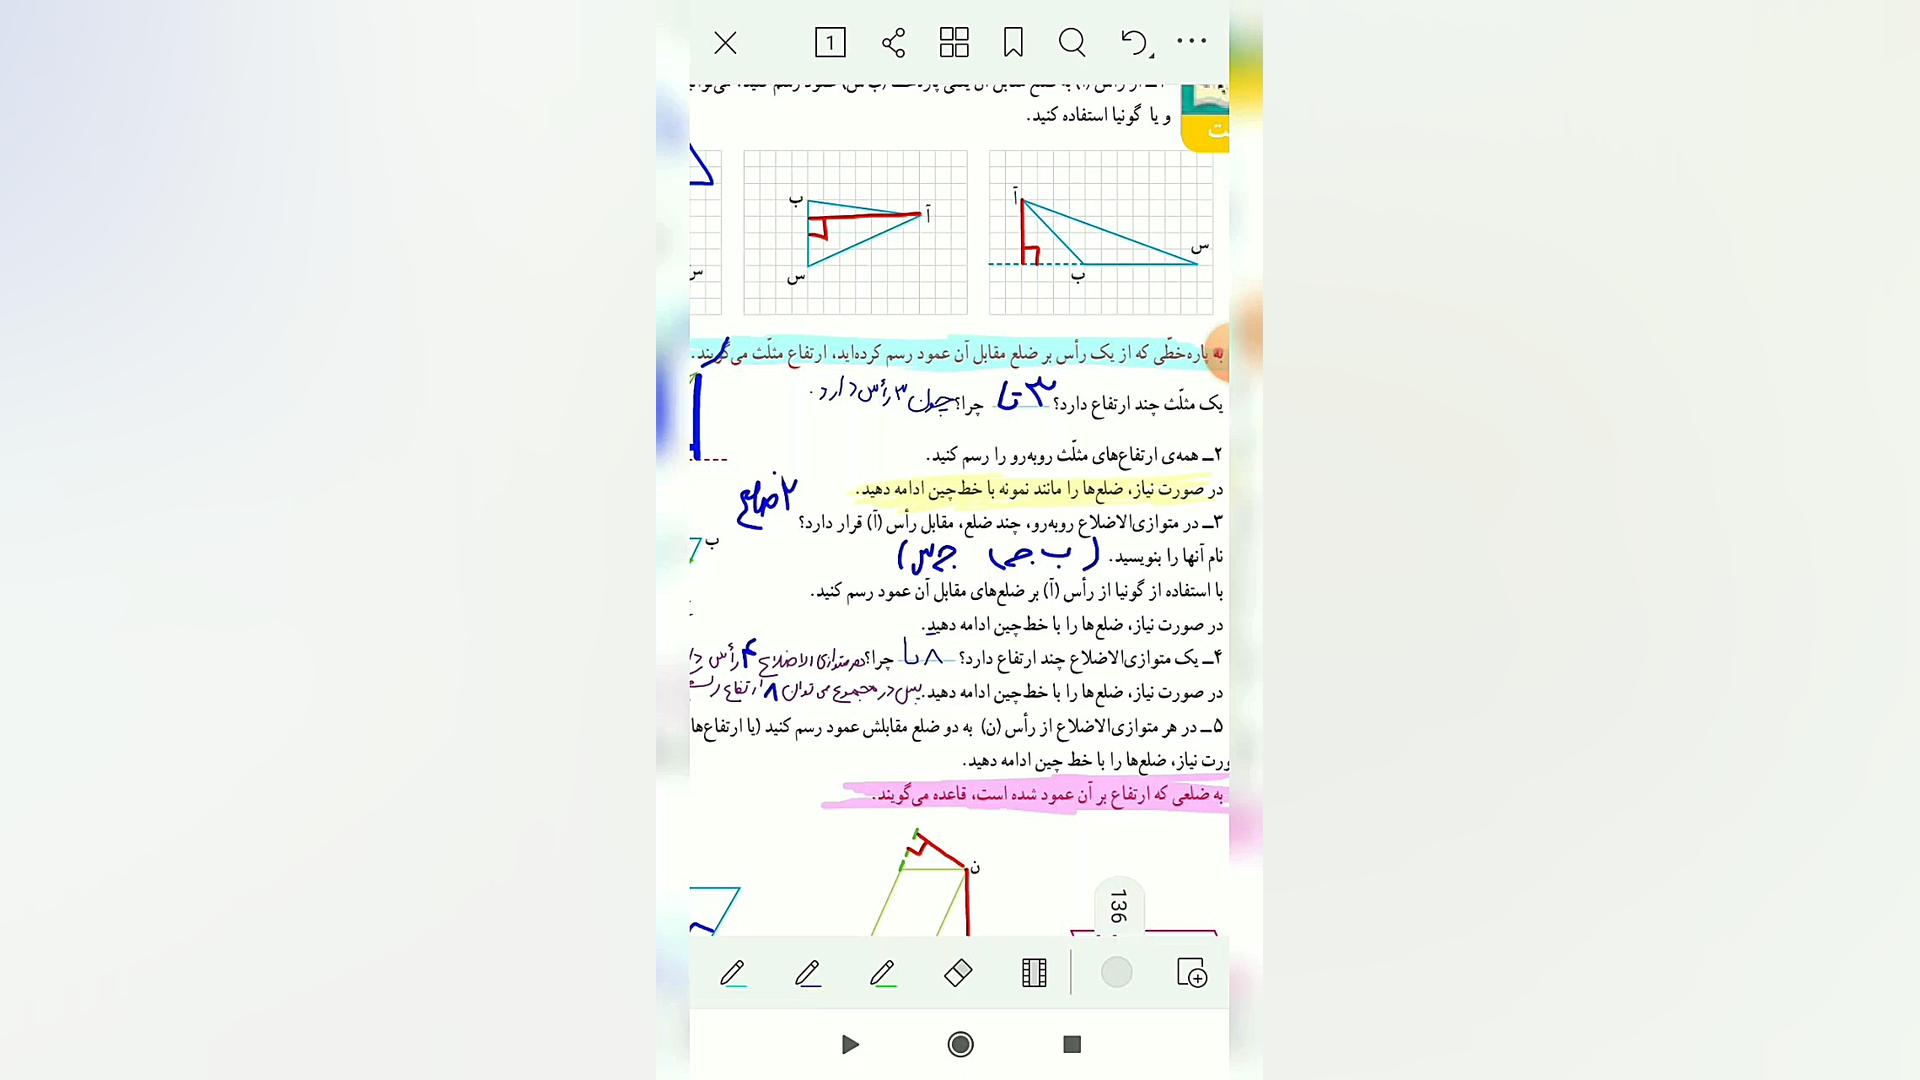 1
و یا گونیا استفاده کنید.
ب
آ
س
آ
ب
س
س
به پاره‌خطّی که از یک رأس بر ضلع مقابل آن عمود رسم کرده‌اید، ارتفاع مثلّث می‌گویند.
یک مثلّث چند ارتفاع دارد؟ ۳ تا چرا؟ چون ۳ رأس دارد.
۲ــ همه‌ی ارتفاع‌های مثلّث روبه‌رو را رسم کنید.
در صورت نیاز، ضلع‌ها را مانند نمونه با خط‌چین ادامه دهید.
۳ــ در متوازی‌الاضلاع روبه‌رو، چند ضلع، مقابل رأس (آ) قرار دارد؟ ۲ ضلع
ب
نام آنها را بنویسید. (ب ج) (ج س)
با استفاده از گونیا از رأس (آ) بر ضلع‌های مقابل آن عمود رسم کنید.
در صورت نیاز، ضلع‌ها را با خط‌چین ادامه دهید.
۴ــ یک متوازی‌الاضلاع چند ارتفاع دارد؟ ۸ تا چرا؟ هر متوازی الاضلاع ۴ رأس
در صورت نیاز، ضلع‌ها را با خط‌چین ادامه دهید. پس در مجموع می توان ۸ ارتفاع
۵ــ در هر متوازی‌الاضلاع از رأس (ن) به دو ضلع مقابلش عمود رسم کنید (یا ارتفاع‌ها
ورت نیاز، ضلع‌ها را با خط چین ادامه دهید.
به ضلعی که ارتفاع بر آن عمود شده است، قاعده می‌گویند.
ن
136